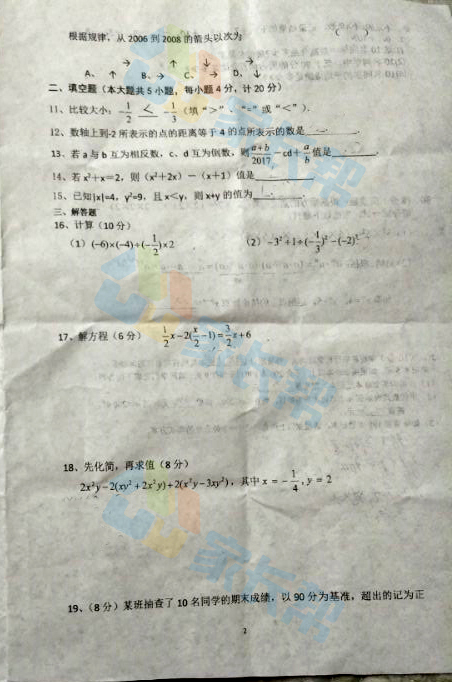 根据规律，从 2006 到 2008 的箭头以次为 （ ）
→ ↑ ↓ →
A、 ↑ B、→ C、→ D、↓
二、填空题（本大题共 5 小题，每小题 4 分，计 20 分）
11、比较大小：-1/2 < -1/3（填“＞”、“=”或“＜”）.
12、数轴上到-2 所表示的点的距离等于 4 的点所表示的数是
13、若 a 与 b 互为相反数，c、d 互为倒数，则 a+b/2017 －cd+ a/b 值是
14、若 x²＋x＝2，则（x²＋2x）－（x＋1）值是
15、已知|x|=4，y²=9，且 x＜y，则 x+y 的值为
三、解答题
16、计算（10 分）
（1）(−6)×(−4)÷(−1/2)×2 （2）−3²+1÷(−1/3)²−(−2)³
17、解方程（6 分） 1/2 x−2(x/2−1)=3/2 x+6
18、先化简，再求值（8 分）
2x²y−2(xy²+2x²y)+2(x²y−3xy²)，其中 x = −1/4, y = 2
19、（8 分）某班抽查了 10 名同学的期末成绩，以 90 分为基准，超出的记为正
2
家长帮
家长帮
家长帮